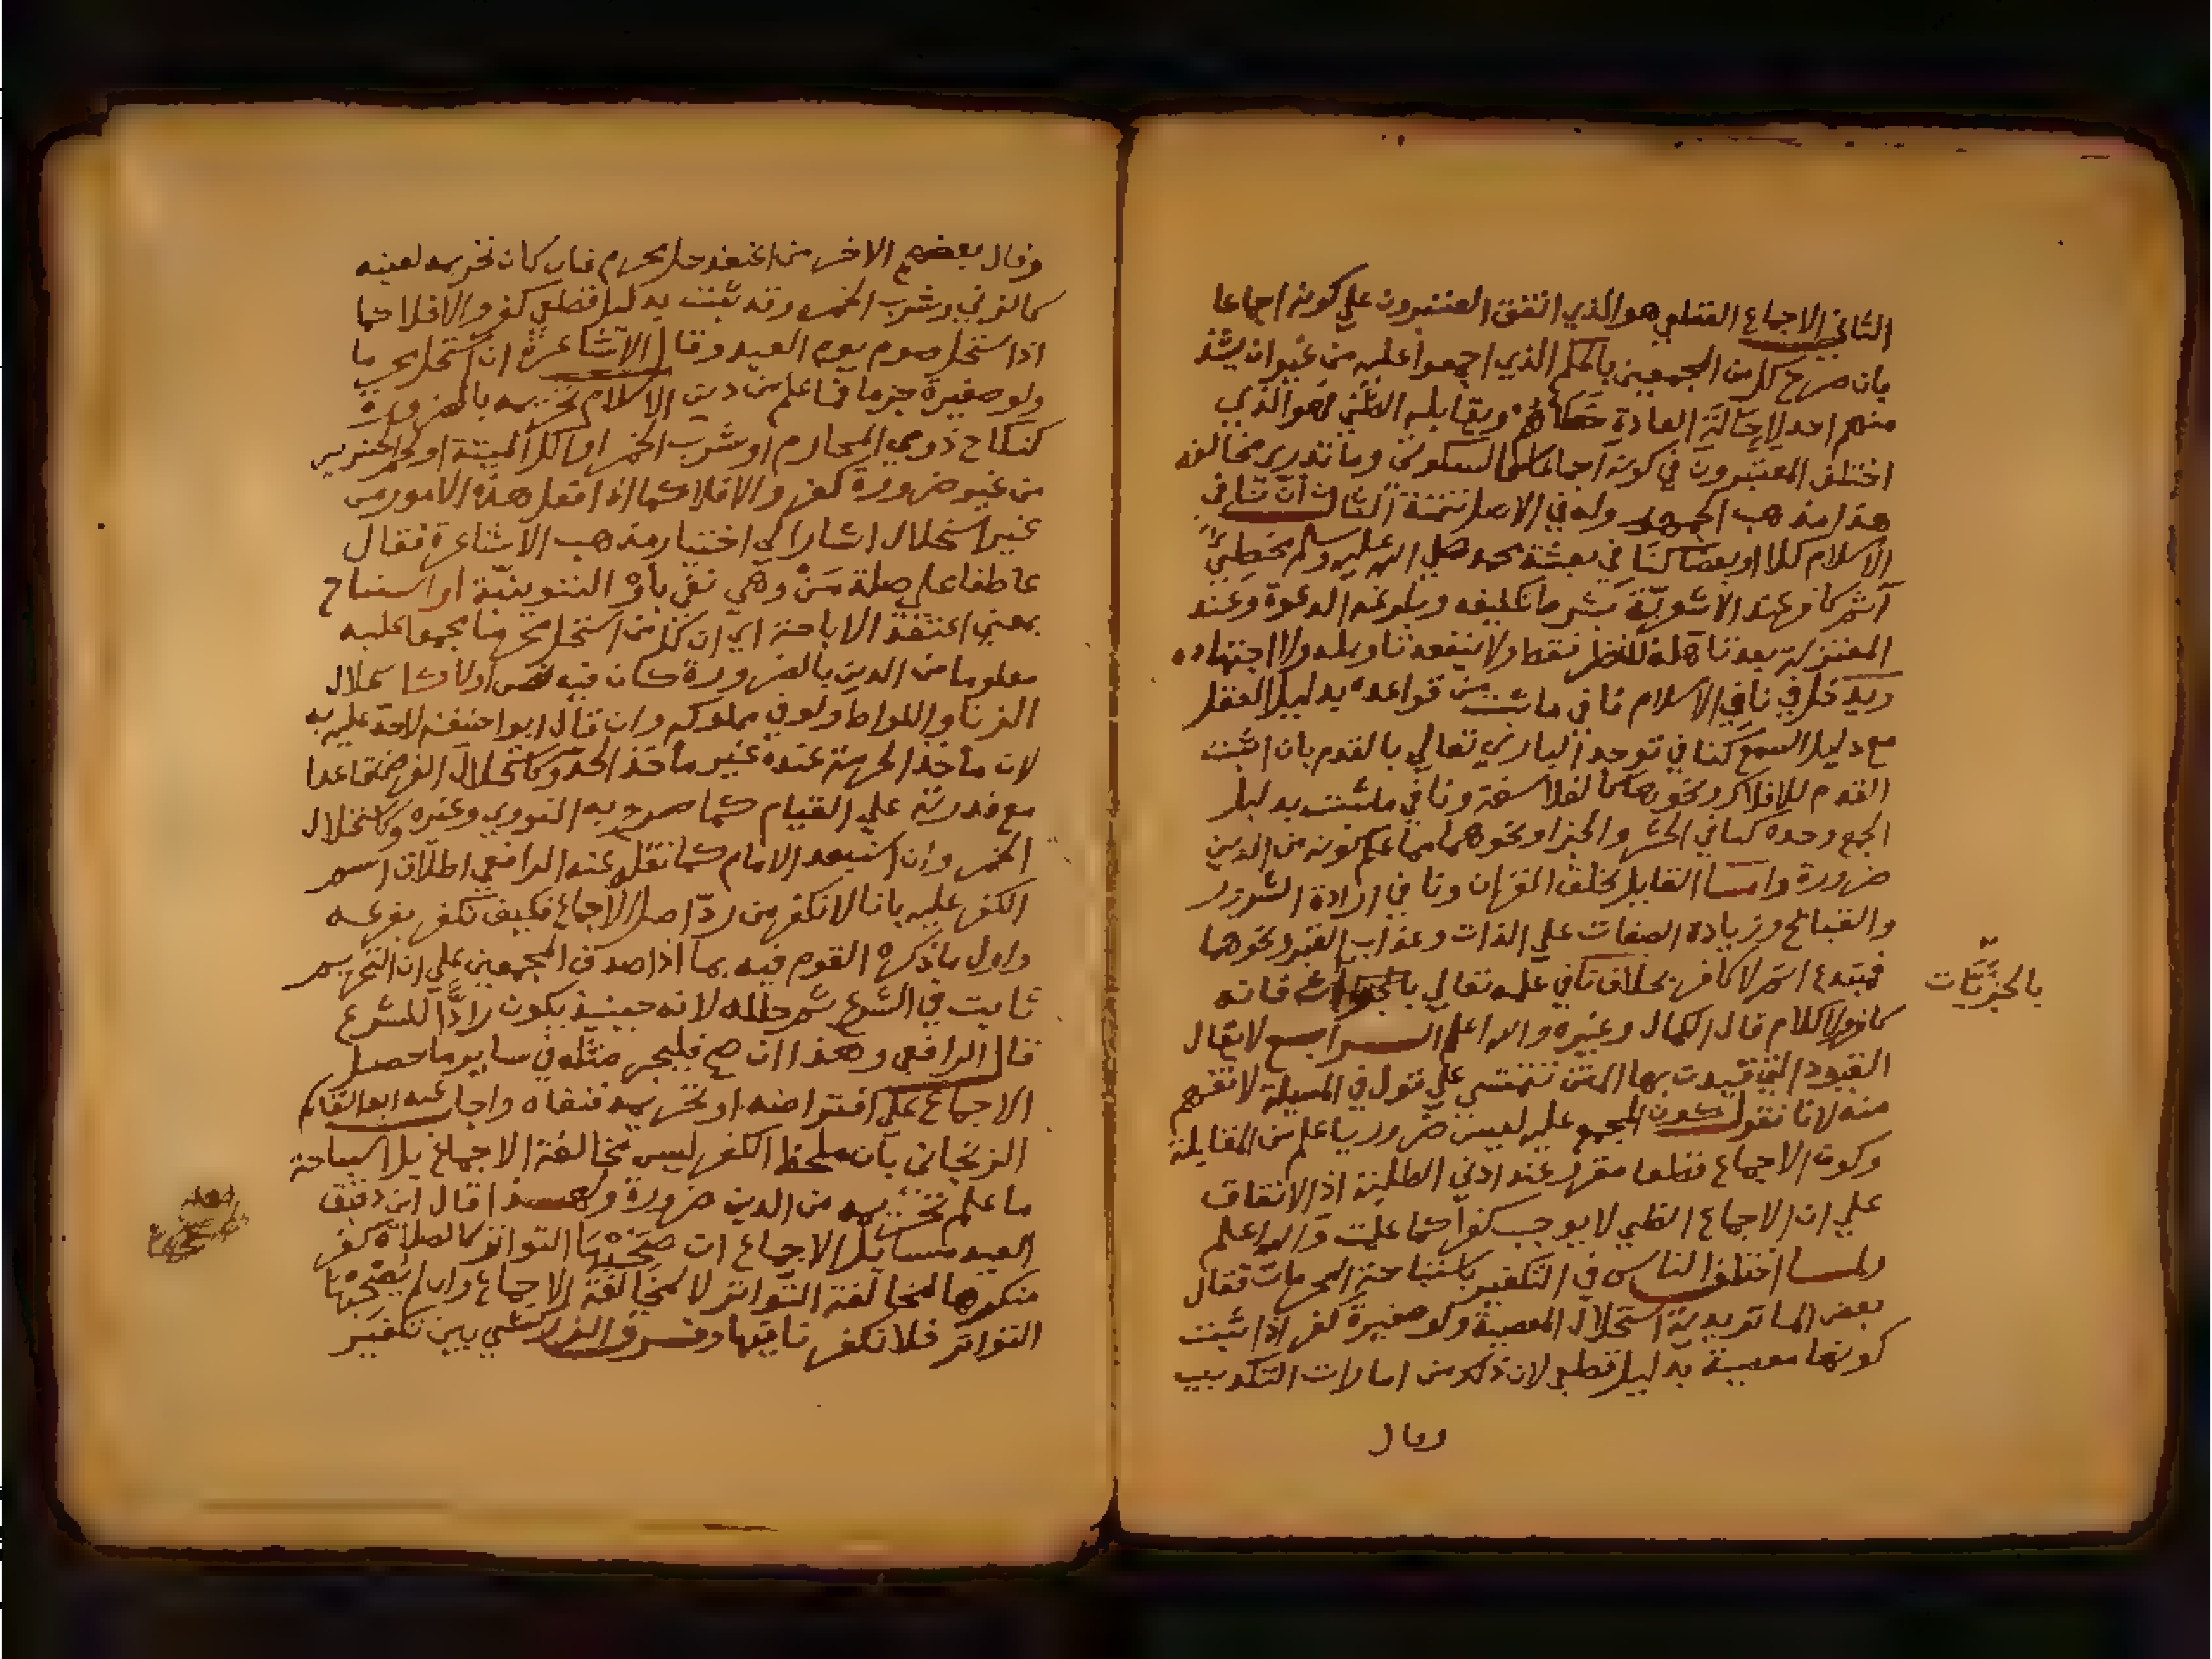 الثاني الاجماع القطعي هو الذي اتفق المعتبرون علي كونه اجماعا
بان صرح كل من المجمعين بالحكم الذي اجمعوا عليه من غير ان يشذ
منهم احد لاحالة العادة خطاهم ويقابله الظني فهو الذي
اختلف المعتبرون في كونه اجماعا كالسكوتي وما ندر مخالفه
هذا مذهب الجمهور وله في الاصل تتمة الثالث ان نافي
الاسلام كلا او بعضا كنافي بعثة محمد صلي الله عليه وسلم مخطئ
آثم كافر عند الاشعرية بشرط تكليفه وبلوغه الدعوة وعند
المعتزلة بعد تاهله للنظر فقط ولا ينفعه تاويله ولا اجتهاده
ويدخل في نافي الاسلام نافي ما ثبت من قواعده بدليل العقل
مع دليل السمع كنافي توحد الباري تعالي بالقدم بان اثبت
القدم للافلاك ونحوها كالفلاسفة ونافي ما ثبت بدليل
السمع وحده كنافي الحشر والجزا ونحوهما مما علم كونه من الدين
ضرورة واما القايل بخلق القران ونافي ارادة الشرور
والقبائح وزيادة الصفات علي الذات وعذاب القبر ونحوها
فمبتدع اثم لا كافر بخلاف نافي علمه تعالي فانه
بالجزئيات
كافر بلا كلام قال الكمال وغيره والله اعلم الرابع لا يقال
القيود التي قيدت بها المتن تتمشي علي قول في المسيلة لا تفهم
منه لانا نقول كون المجمع عليه ليس ضروريا علم من المقابلة
وكون الاجماع قطعيا مقرر عند ادني الطلبة اذ الاتفاق
علي ان الاجماع الظني لا يوجب كفرا كما علمت والله اعلم
ولما اختلف الناس في التكفير باستباحة المحرمات فقال
بعض الماتريدية استحلال المعصية ولو صغيرة كفر اذا ثبت
كونها معصية بدليل قطعي لان ذلك من امارات التكذيب
وقال
وقال بعضهم الاخر من اعتقد حل محرم فان كان تحريمه لعينه
كالزني وشرب الخمر وقد ثبت بدليل قطعي كفر والا فلا كما
اذا استحل صوم يوم العيد وقال الاشاعرة ان استحل محرما
ولو صغيرة جزما مما علم من دين الاسلام تحريمه بالضرورة
كنكاح ذوي المحارم او شرب الخمر او اكل الميتة او لحم الخنزير
من غير ضرورة كفر والا فلا كما اذا فعل هذه الامور من
غير استحلال اشار الي اختيار مذهب الاشاعرة فقال
عاطفا علي صلة من وهي نفي باو التنويعية او استباح
بمعني اعتقد الاباحة اي ان كل من استحل محرما مجمعا عليه
معلوما من الدين بالضرورة كان فيه نص اولا كاستحلال
الزنا واللواط ولو في مملوكه وان قال ابو حنيفة لاحد عليه به
لان ماخذ الحرمة عنده غير ماخذ الحد وكاستحلال الفرض قاعدا
مع قدرته علي القيام كما صرح به النووي وغيره وكاستحلال
الخمر وان استبعد الامام كما نقله عنه الرافعي اطلاق اسم
الكفر عليه بانا لا نكفر من رد اصل الاجماع فكيف نكفر بفرعه
واول ما ذكره القوم فيه بما اذا صدق المجمعين علي ان التحريم
ثابت في الشرع ثم حلله لانه حينيذ يكون رادا للشرع
قال الرافعي وهذا ان صح فليجر مثله في ساير ما حصل
الاجماع علي افتراضه او تحريمه فنفاه واجاب عنه ابو القاسم
الزنجاني بان ملحظ الكفر ليس مخالفة الاجماع بل استباحة
ما علم تحريمه من الدين ضرورة ولهذا قال ابن دقيق
العيد مسايل الاجماع ان صحبها التواتر كالصلاة كفر
منكرها لمخالفة التواتر لا لمخالفة الاجماع وان لم يصحبها
التواتر فلا نكفر نافيها وفرق الزركشي بين تكفير